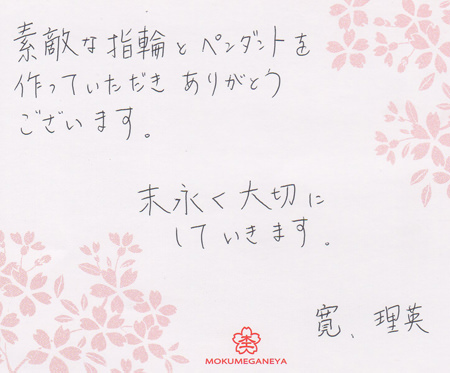 素敵な指輪とペンダントを
作っていただきありがとう
ございます。
末永く大切に
していきます。
寛、理英
MOKUMEGANEYA